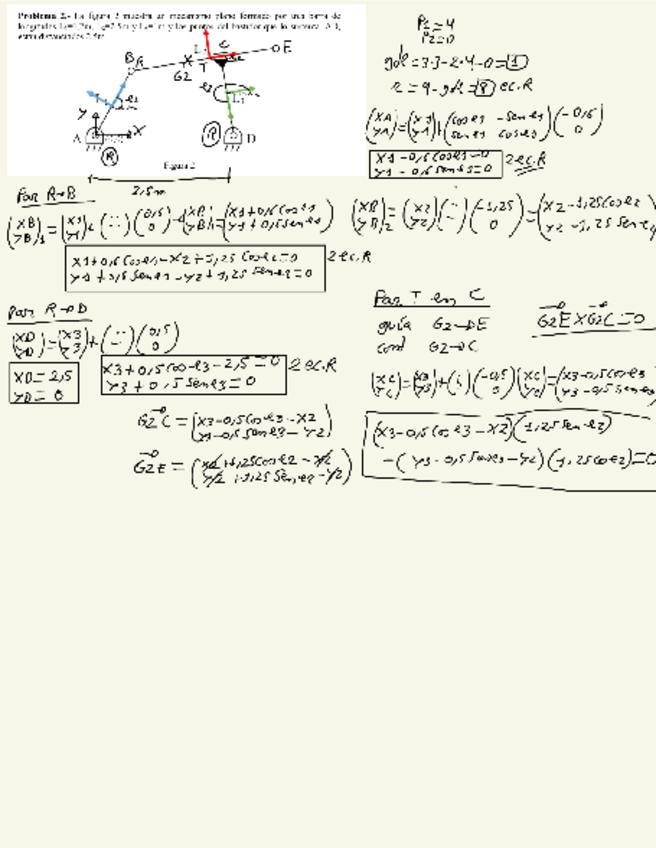 Problema 2.- La figura 2 muestra un mecanismo plano formado por una barra de
longitudes y los puntos del bastidor que lo sustenta A D,
están distanciados 2.5m
P1=4
P2=0
gdl=3·3-2·4-0=1
r=9-gdl=8 ec.R
(XA YA)=(X1 Y1)+(cos e1 -sen e1 sen e1 cos e1)(-0,6 0)
X1-0,6 cos e1=0
Y1-0,6 sen e1=0
2 ec.R
B R C E
G2 T
Y X
A R R D
Figura 2
2,5m
Par R→B
(XB YB)1=(X1 Y1)+(∴)(0,6 0)→(XB YB)1=(X1+0,6 cos e1 Y1+0,6 sen e1)
(XB YB)2=(X2 Y2)(∴)(-1,25 0)=(X2-1,25 cos e2 Y2-1,25 sen e2
X1+0,6 cos e1-X2+1,25 cos e2=0
Y1+0,6 sen e1-Y2+1,25 sen e2=0
2 ec.R
Par R→D
(XD YD)=(X3 Y3)+(∴)(0,5 0)
XD=2,5
YD=0
X3+0,5 cos e3-2,5=0
Y3+0,5 sen e3=0
2 ec.R
Par T en C
guía G2→E
cont G2→C
G2E X G2C=0
(XC YC)=(X3 Y3)+(∴)(-0,5 0)(XC YC)=(X3-0,5 cos e3 Y3-0,5 sen e3
G2C=(X3-0,5 cos e3-X2 Y3-0,5 sen e3-Y2)
G2E=(X2+1,25 cos e2-X2 Y2+1,25 sen e2-Y2)
(X3-0,5 cos e3-X2)(1,25 sen e2)
-(Y3-0,5 sen e3-Y2)(1,25 cos e2)=0